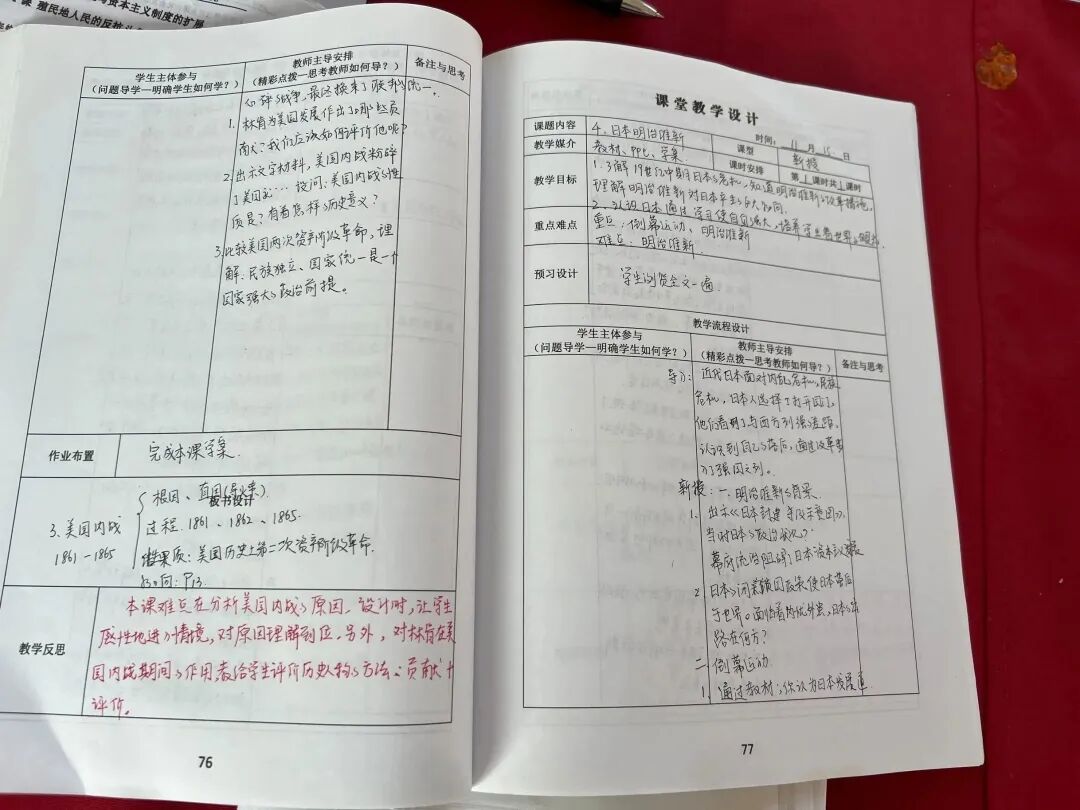 与资本主义制度的扩展
课 殖民地人民的反抗斗争
学生主体参与
（问题导学—明确学生如何学？）
教师主导安排
（精彩点拨—思考教师如何导？）
备注与思考
战争，最终换来了联邦的统一。
1. 林肯为美国发展作出了哪些贡
献？我们应该如何评价他呢？
2. 出示文字材料，美国内战粉碎
了美国……设问：美国内战的性
质是？有着怎样的历史意义？
3. 比较美国两次资产阶级革命，理
解：民族独立、国家统一是一个
国家强大的政治前提。
作业布置
完成本课学案.
板书设计
3. 美国内战
1861-1865
根因、直因(导火索).
过程. 1861、1862、1865.
结果质：美国历史上第二次资产阶级革命.
影响：P13.
教学反思
本课难点在分析美国内战的原因. 设计时，让学生
感性地进入情境，对原因理解到位. 另外，对林肯在美
国内战期间的作用教给学生评价历史人物的方法：贡献+
评价。
76
课堂教学设计
课题内容
4. 日本明治维新
时间： 11 月 15 日
教学媒介
教材、PPT、学案.
课型
新授
课时安排
第 1 课时共 1 课时
教学目标
1. 了解19世纪中期日本的危机，知道明治维新的改革措施，
理解明治维新对日本产生的大影响.
2. 认识日本通过学习使自身强大，培养学生看世界的眼光.
重点难点
重点：倒幕运动、明治维新
难点：明治维新.
预习设计
学生浏览全文一遍
教学流程设计
学生主体参与
（问题导学—明确学生如何学？）
教师主导安排
（精彩点拨—思考教师如何导？）
备注与思考
导入：近代日本面对内乱危机、民族
危机，日本人选择了打开国门，
他们看到了与西方列强的差距，
认识到自己的落后，通过改革步
入了强国之列。
新授：一. 明治维新的背景.
1. 出示《日本封建等级示意图》，
当时日本的政治状况？
幕府统治阻碍了日本资本主义发展
2. 日本的闭关锁国政策使日本落后
于世界。面临着内忧外患，日本的出
路在何方？
二. 倒幕运动.
1. 通过教材，你认为日本发展道
77